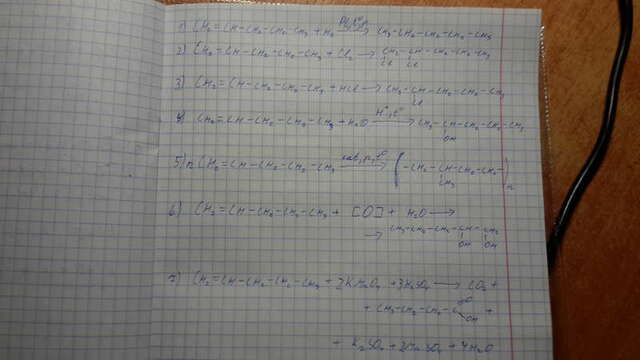 1) CH₂=CH-CH₂-CH₂-CH₃ + H₂ → CH₃-CH₂-CH₂-CH₂-CH₃
2) CH₂=CH-CH₂-CH₂-CH₃ + Cl₂ → CH₂-CH-CH₂-CH₂-CH₃
Cl Cl
3) CH₂=CH-CH₂-CH₂-CH₃ + HCl → CH₃-CH-CH₂-CH₂-CH₃
Cl
4) CH₂=CH-CH₂-CH₂-CH₃ + H₂O H⁺, t° → CH₃-CH-CH₂-CH₂-CH₃
OH
5) n CH₂=CH-CH₂-CH₂-CH₃ kat, p, t° →
6) CH₂=CH-CH₂-CH₂-CH₃ + [O] + H₂O →
→ CH₃-CH₂-CH₂-CH-CH₂
OH OH
7) CH₂=CH-CH₂-CH₂-CH₃ + 2KMnO₄ + 3H₂SO₄ → CO₂ +
+ CH₃-CH₂-CH₂-C=O OH +
+ K₂SO₄ + 2MnSO₄ + 4H₂O